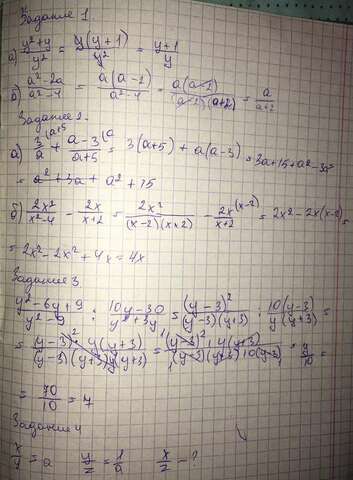 Задание 1.
а) (y²+y)/y² = y(y+1)/y² = (y+1)/y
б) (a²-2a)/(a²-4) = a(a-2)/(a²-4) = a(a-2)/((a-2)(a+2)) = a/(a+2)
Задание 2.
а) 3/a (a+5 + (a-3)/(a+5) (a = 3(a+5) + a(a-3) = 3a+15+a²-3a=
= a²+3a + a²+15
б) 2x²/(x²-4) - 2x/(x+2) = 2x²/((x-2)(x+2)) - 2x/(x+2) (x-2) = 2x²-2x(x-2)=
= 2x²-2x²+4x=4x
Задание 3.
(y²-6y+9)/(y²-9) : (10y-30)/(y²+3y) = (y-3)²/((y-3)(y+3)) : 10(y-3)/(y(y+3)) =
= 
= 70/10 = 7
Задание 4
x/y = a y/z = 1/a x/z - ?